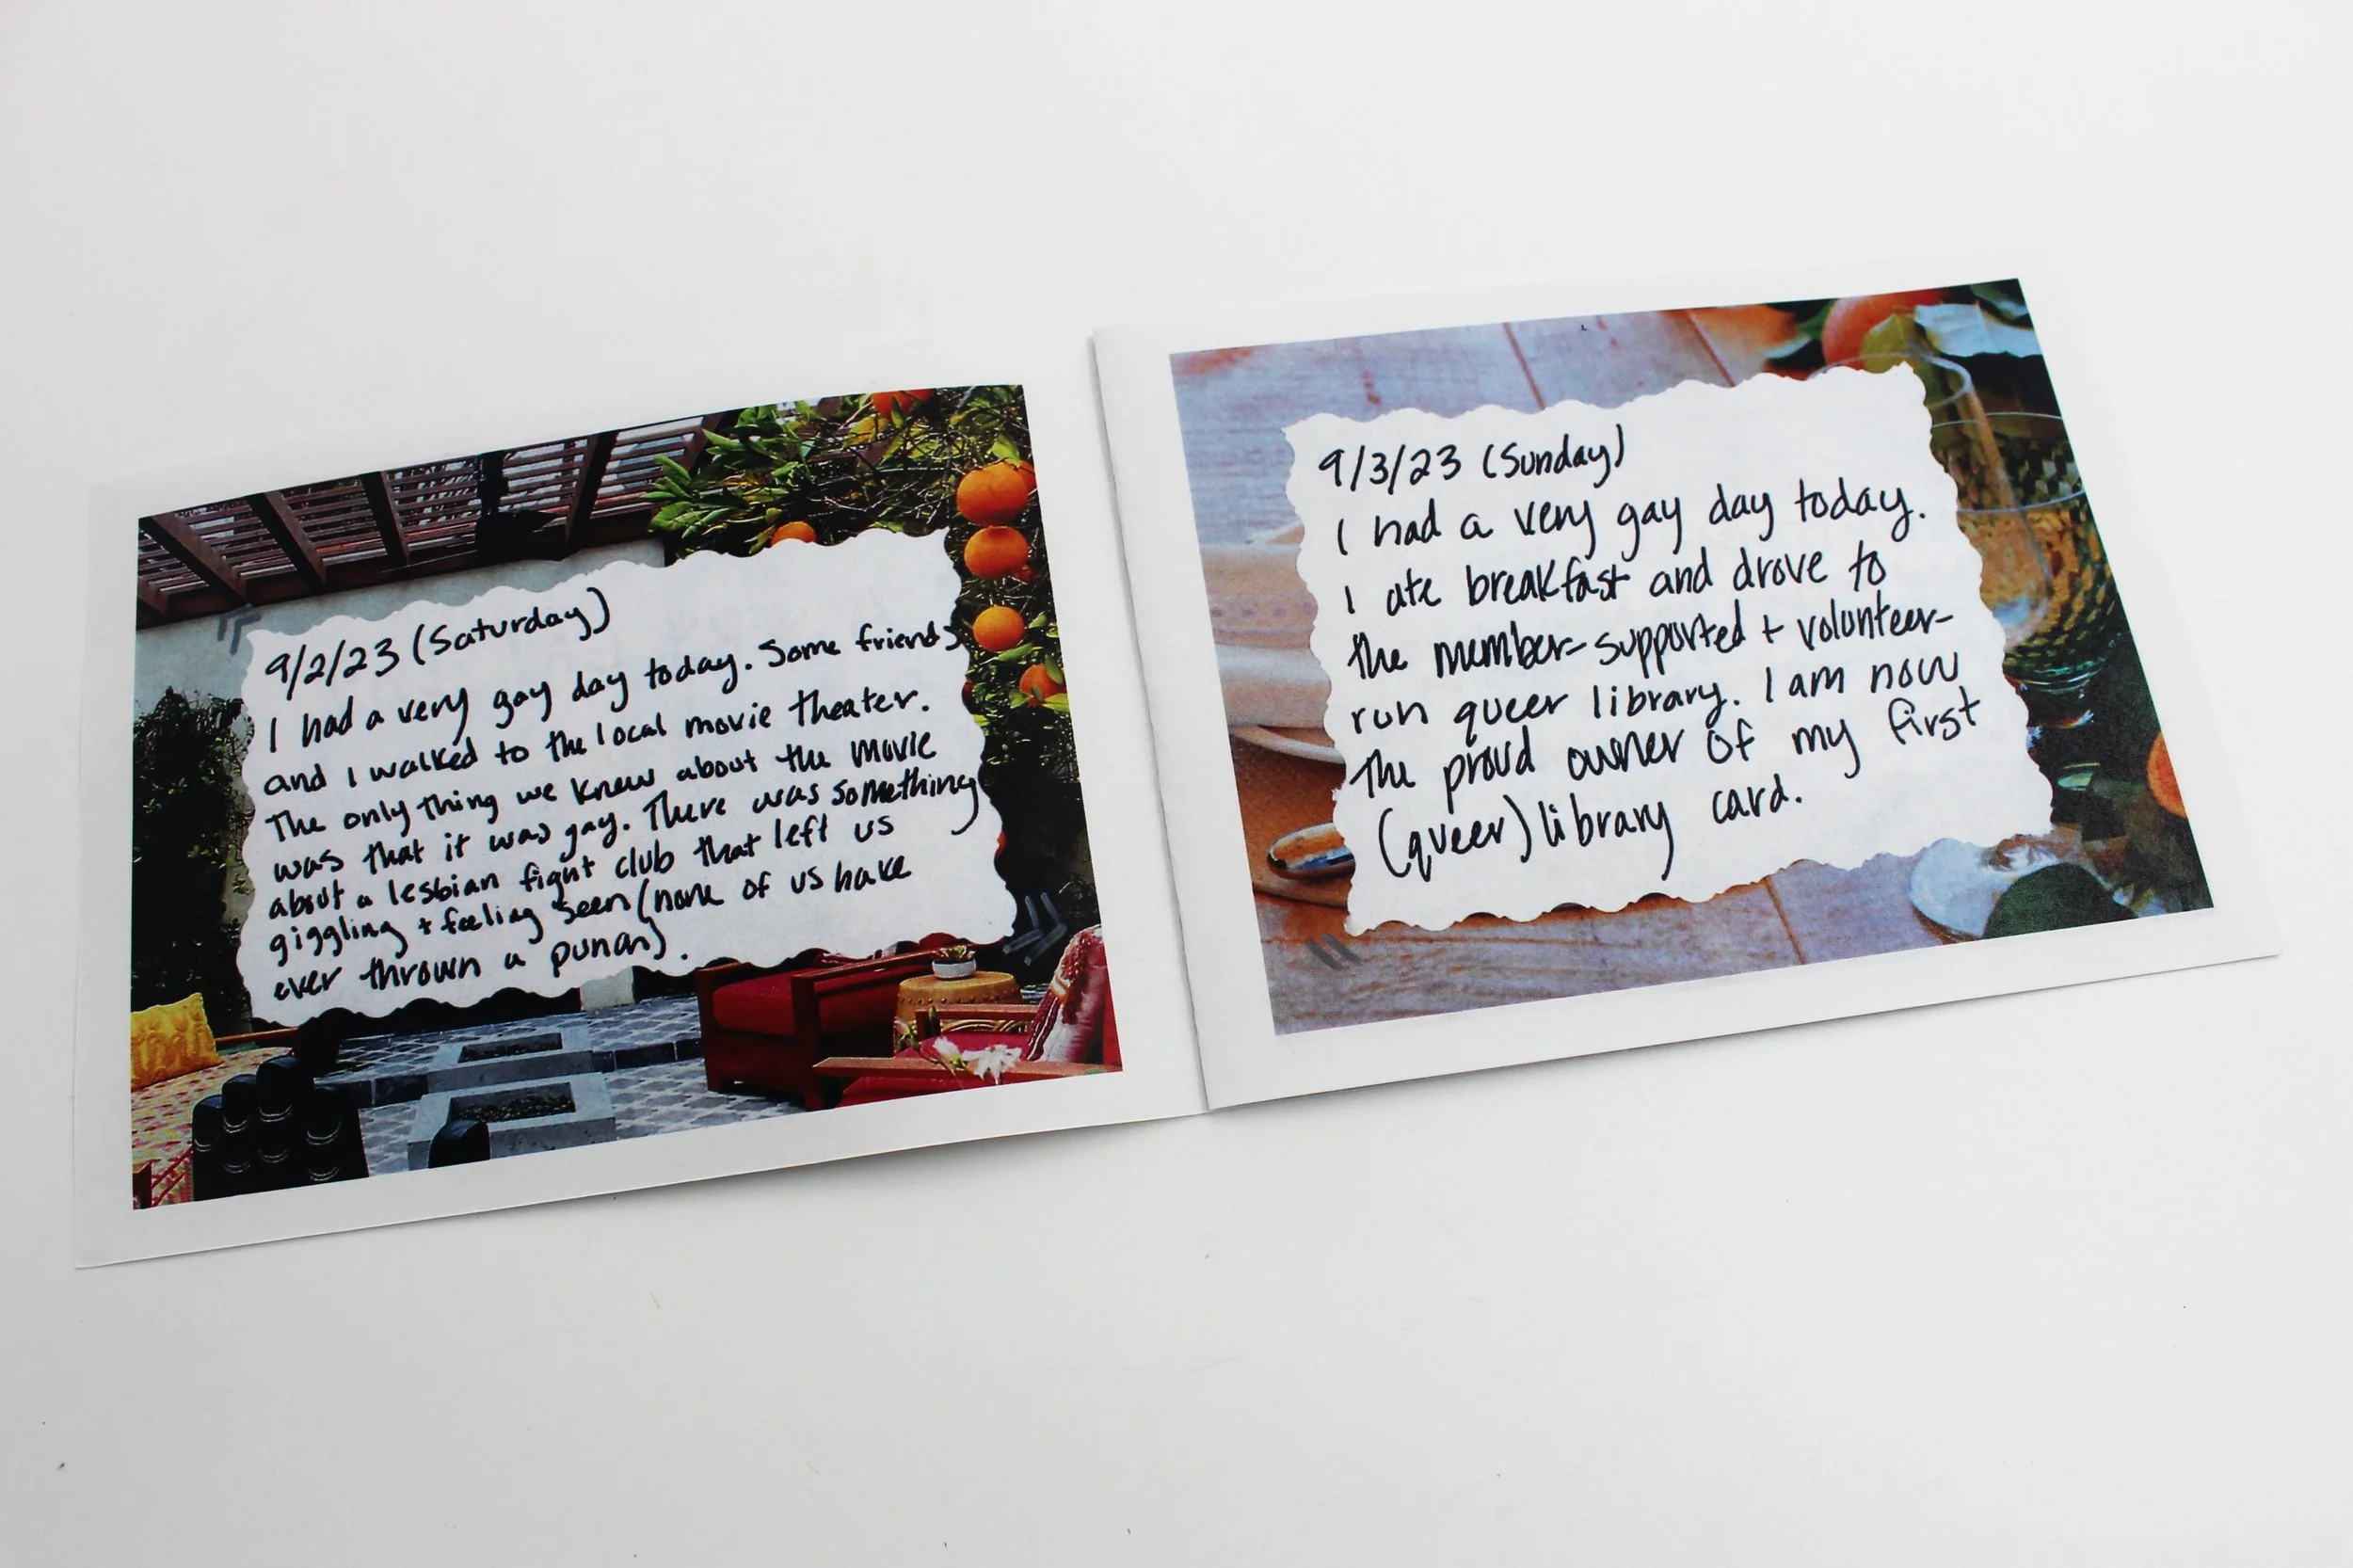 9/2/23 (Saturday)
I had a very gay day today. Some friends
and I walked to the local movie theater.
The only thing we knew about the movie
was that it was gay. There was something
about a lesbian fight club that left us
giggling + feeling seen (none of us have
ever thrown a punch).
9/3/23 (Sunday)
I had a very gay day today.
I ate breakfast and drove to
the member-supported + volunteer-
run queer library. I am now
the proud owner of my first
(queer) library card.